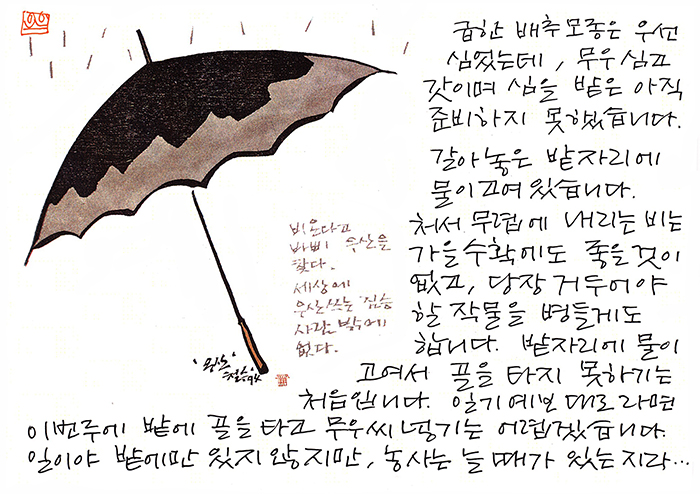 급한 배추모종은 우선
심었는데, 무우 심고
갓이며 심을 밭은 아직
준비하지 못했습니다.
갈아놓은 밭자리에
물이고여 있습니다.
처서 무렵에 내리는 비는
가을수확에도 좋을것이
없고, 당장 거두어야
할 작물을 병들게도
합니다. 밭자리에 물이
고여서 골을 타지 못하기는
처음입니다. 일기예보 대로라면
이번주에 밭에 골을 타고 무우씨 넣기는 어렵겠습니다.
일이야 밭에만 있지 않지만, 농사는 늘 때가 있는지라…
비온다고
바삐 우산을
찾다.
세상에
우산쓰는 짐승
사람 밖에
없다.
'우산' 철수94